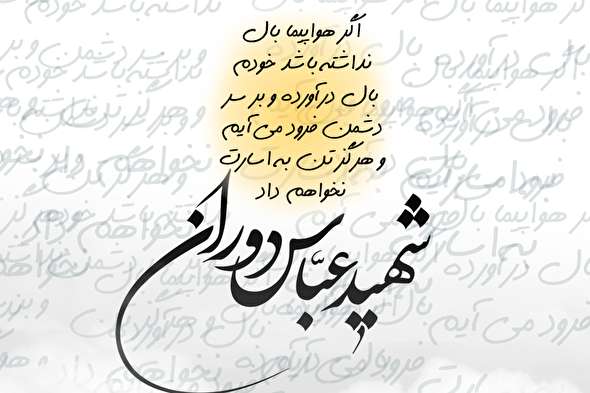 اگر هواپیما بال
نداشته باشد خودم
بال درآورده و بر سر
دشمن فرود می آیم
و هرگز تن به اسارت
نخواهم داد
شهید عباس دوران